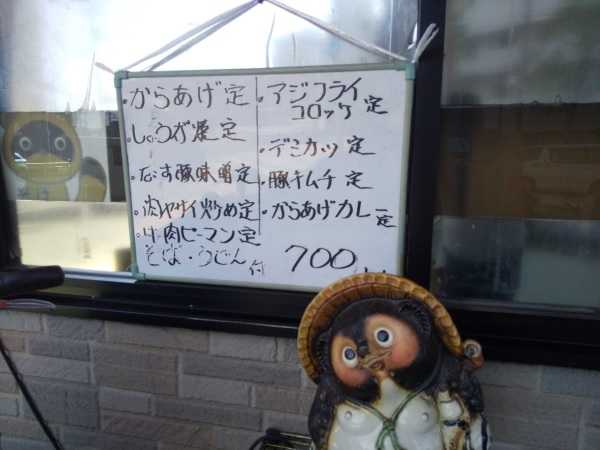 ・からあげ定
・しょうが焼定
・なす豚味噌定
・肉ヤサイ炒め定
・牛肉ピーマン定
・アジフライ
コロッケ定
・デミカツ定
・豚キムチ定
・からあげカレー定
そば・うどん付 700